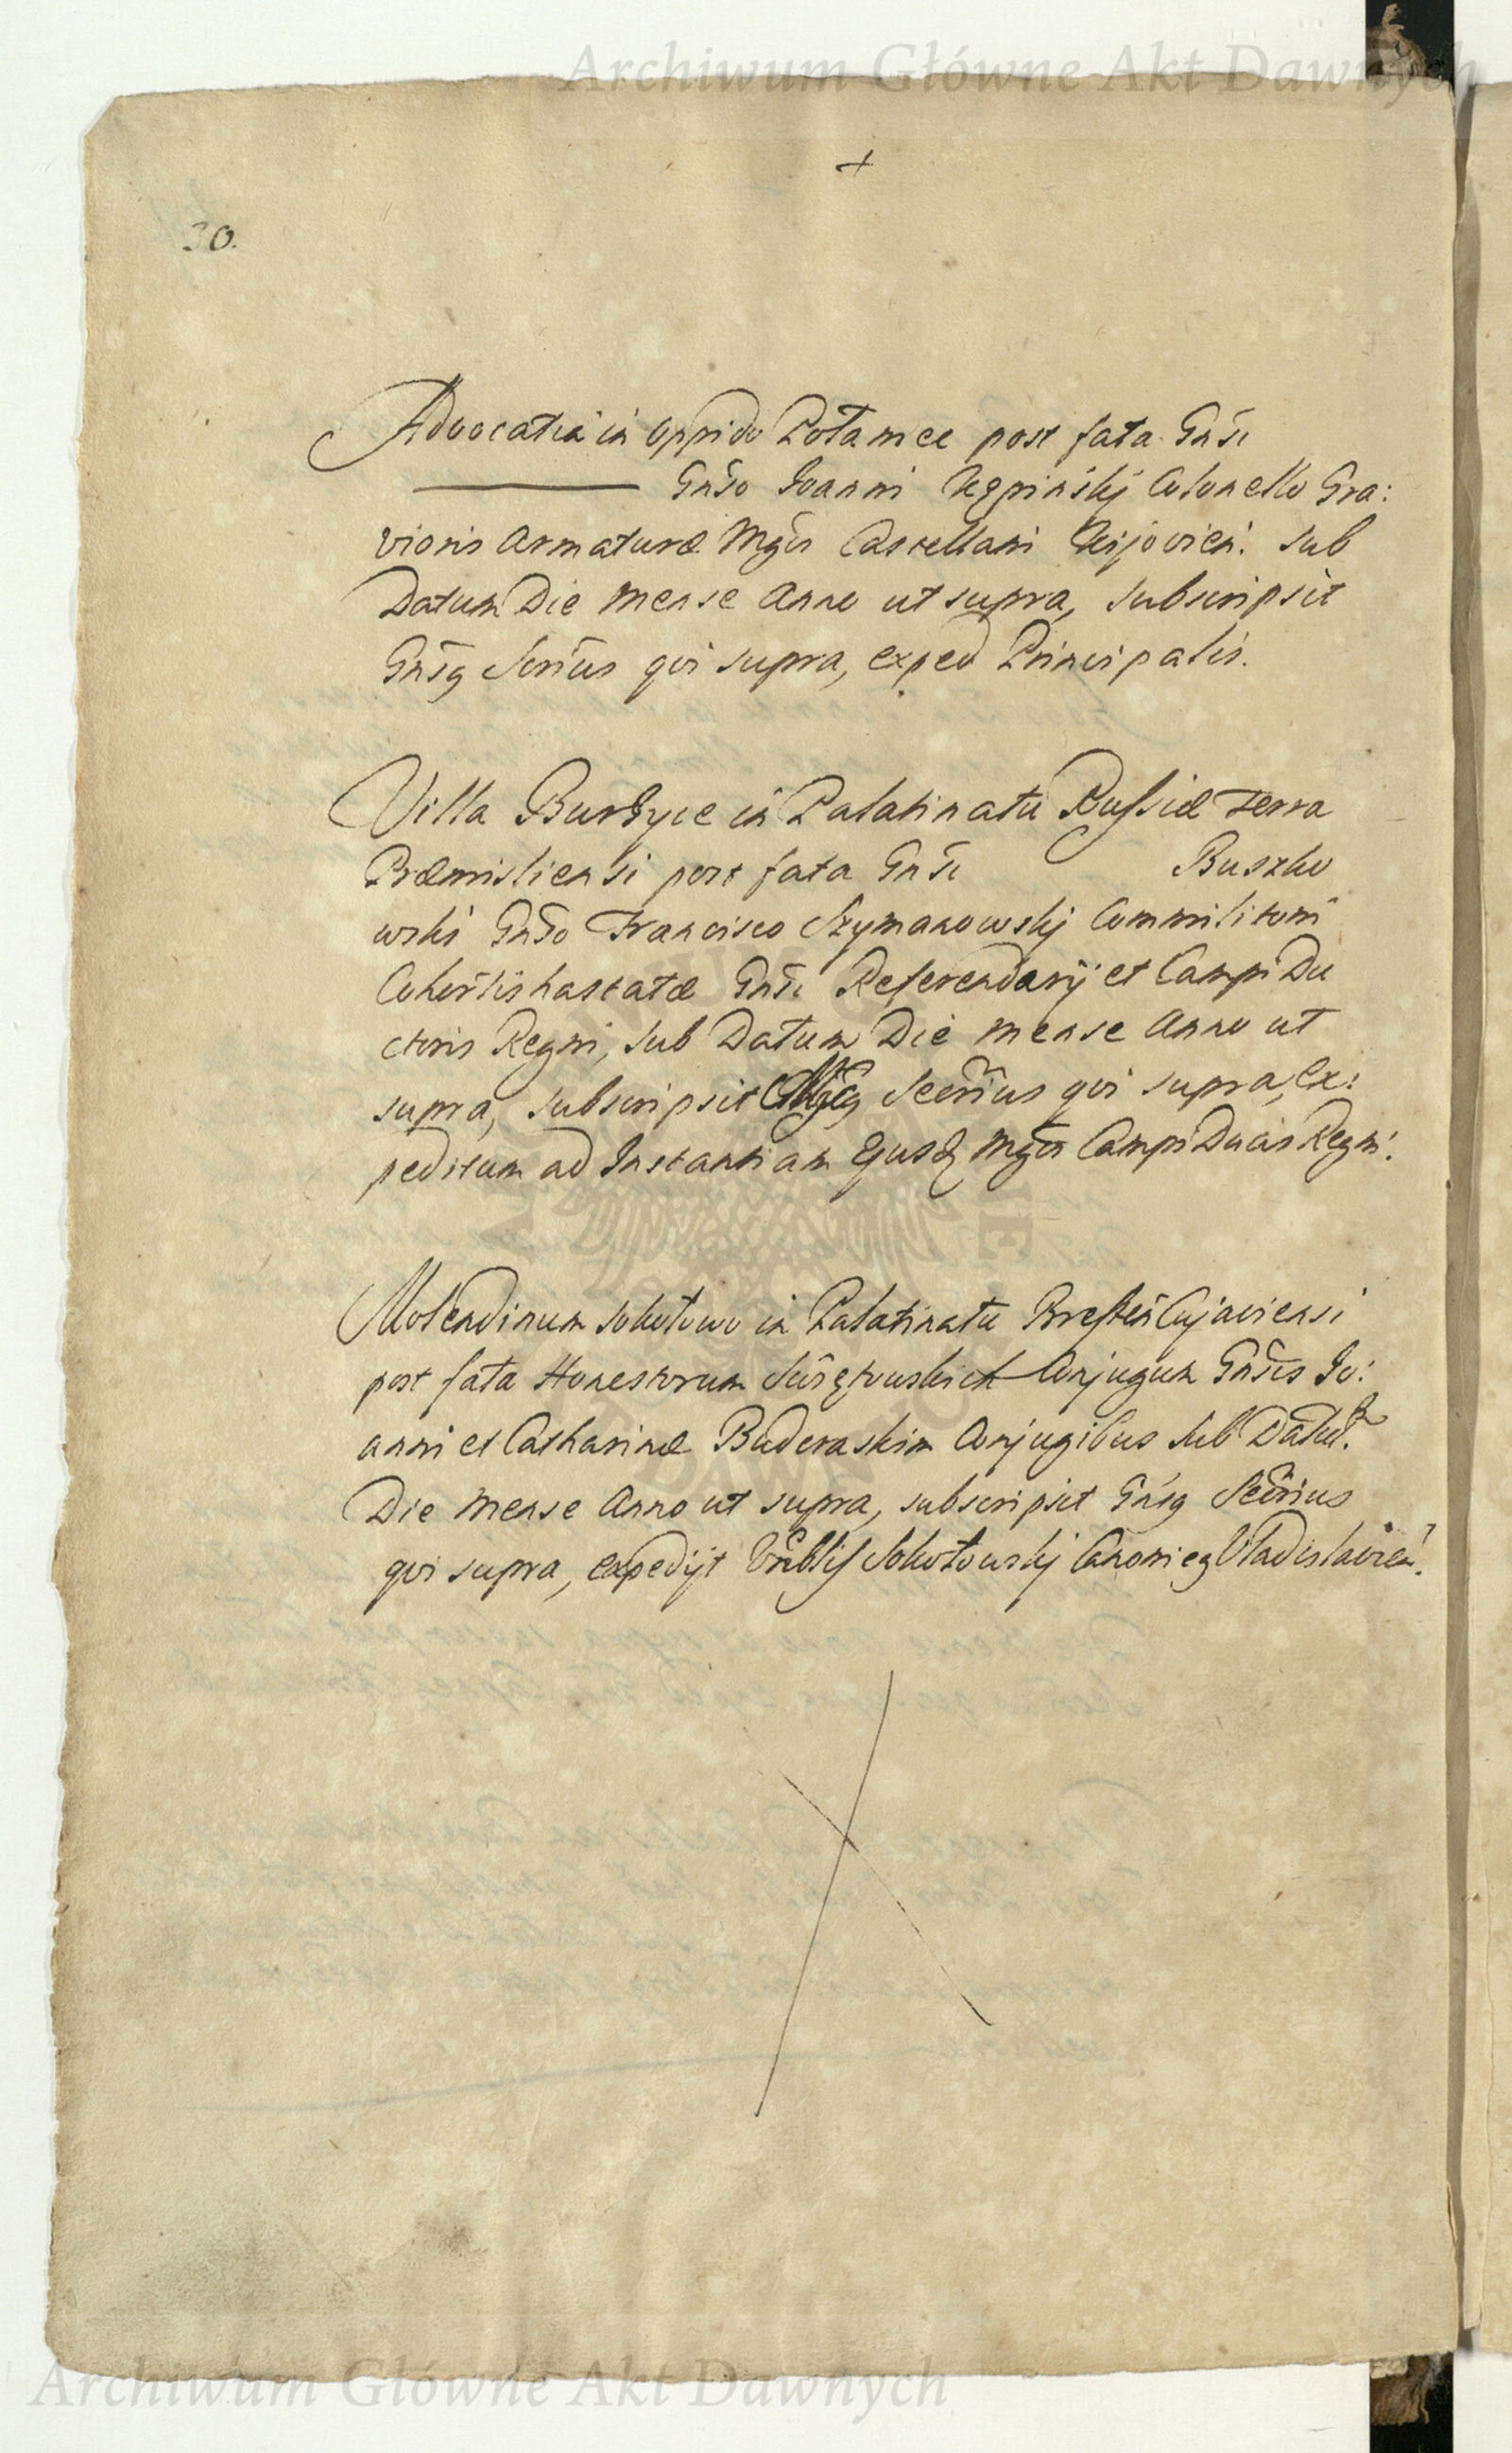 Archiwum Główne Akt Dawnych
30.
Advocatia in Oppido Potamce post fata Gnsi
Gnso Joanni Colonello Gra:
vioris Armaturæ Mgci Castellani Kijovien: sub
Datum Die Mense Anno ut supra, subscripsit
Gnsq Scrius qvi supra, exped Principalis.
Villa Burdyce in Palatinatu Russiæ terra
Præmisliensi post fata Gnsi Buszko
wski Gnso Francisco Szymanowskj Commilitoni
Cohortis hastatæ Gnsi Referendarij et Campi Du
ctoris Regni, sub Datum Die Mense Anno ut
supra, subscripsit Secrius qvi supra, Ex:
peditum ad Instantiam Ejusq Mgci Campi Ducis Regni.
Molendinum Sokołowo in Palatinatu Bresten Cujaviensi
post fata Honestorum Conjugum Gnsis Jo:
anni et Catharinæ Buderaskim Conjugibus sub Datū.
Die Mense Anno ut supra, subscripsit Gnsq Secrius
qvi supra, expedijt Vnblis Sokołowskj Canonicq Vladislavien.
Archiwum Główne Akt Dawnych